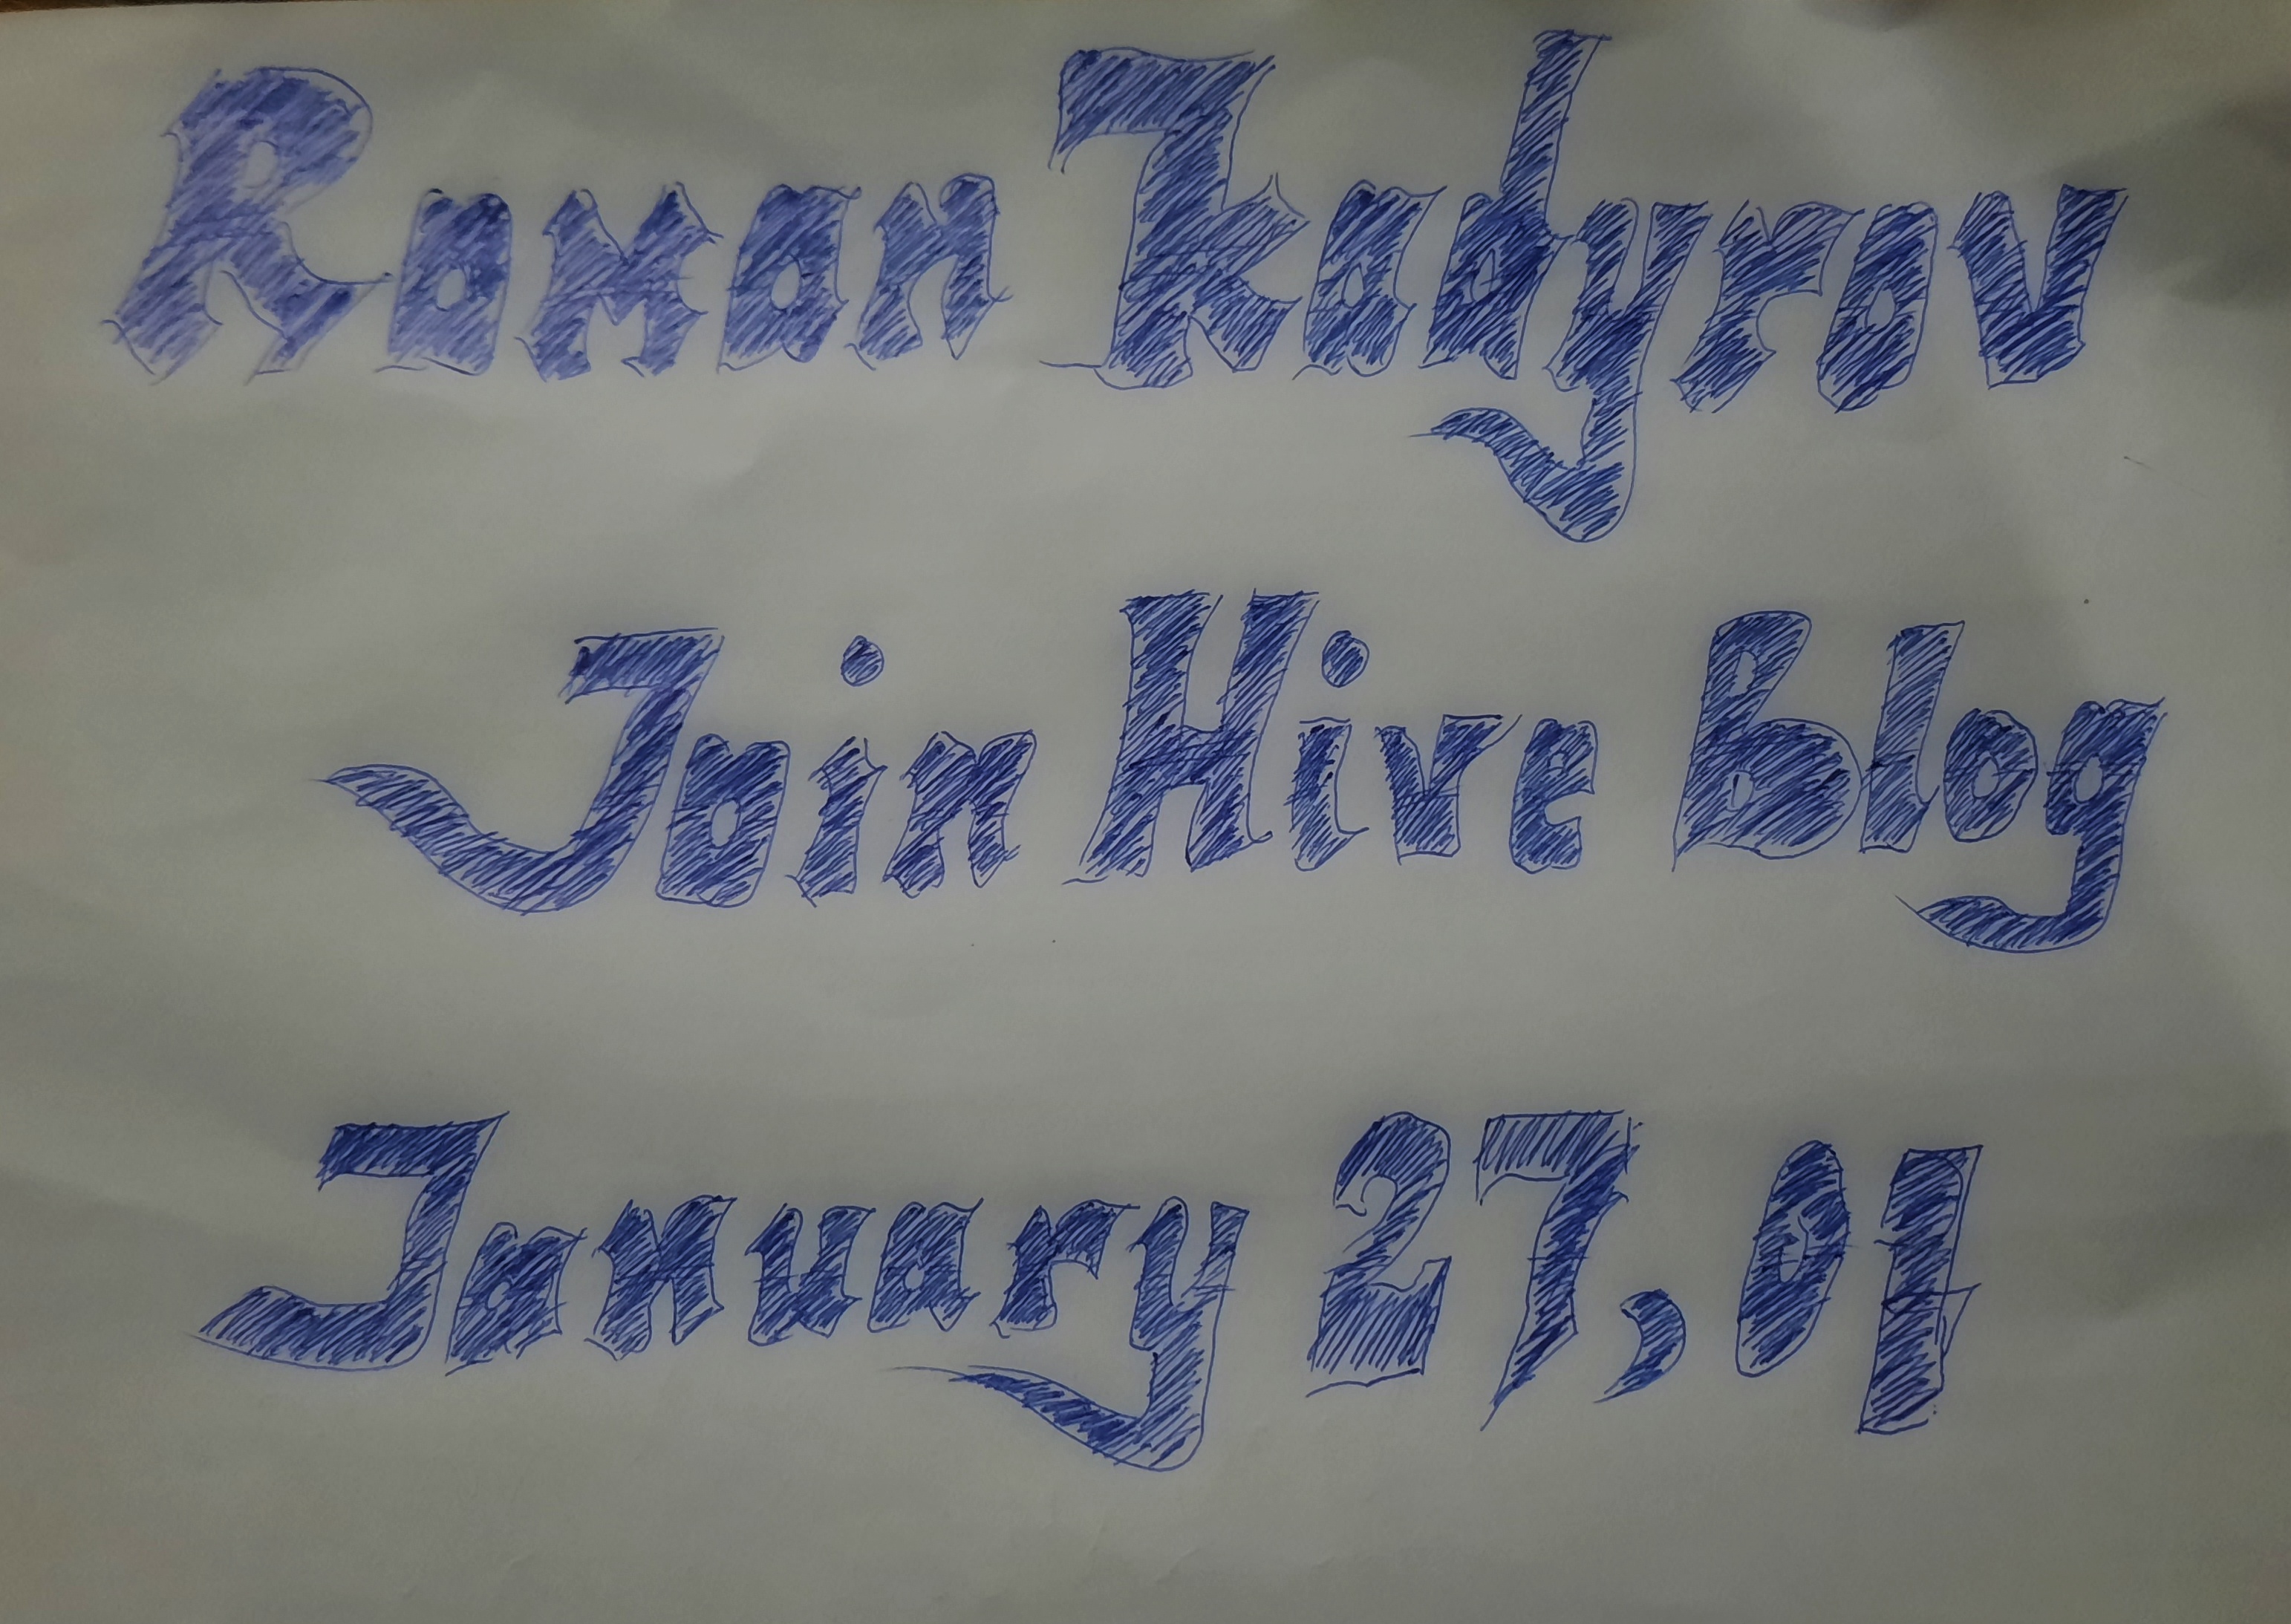 Roman Kadyrov
Join Hive Blog
January 27, 01